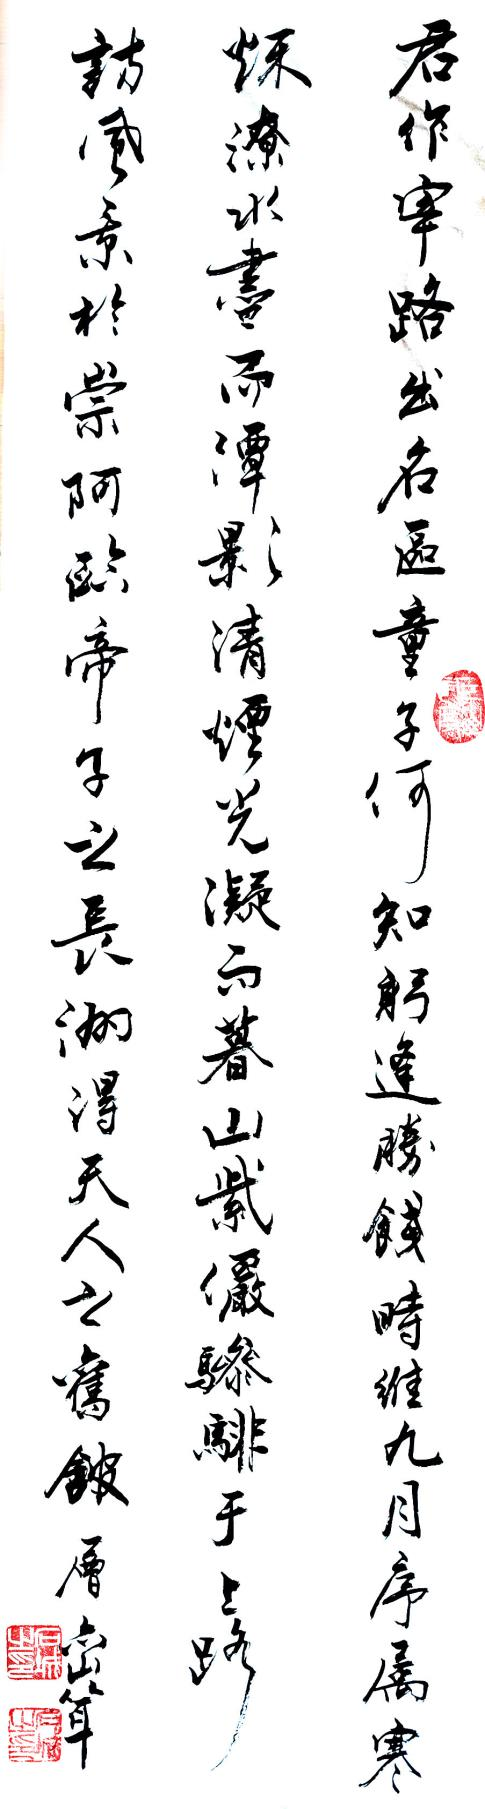 君作宰路出名區童子何知躬逢勝餞時維九月序属寒
秌潦水盡而潭影清煙光凝而暮山紫儼驂騑于上路
訪風景於崇阿臨帝子之長洲得天人之舊館層峦耸